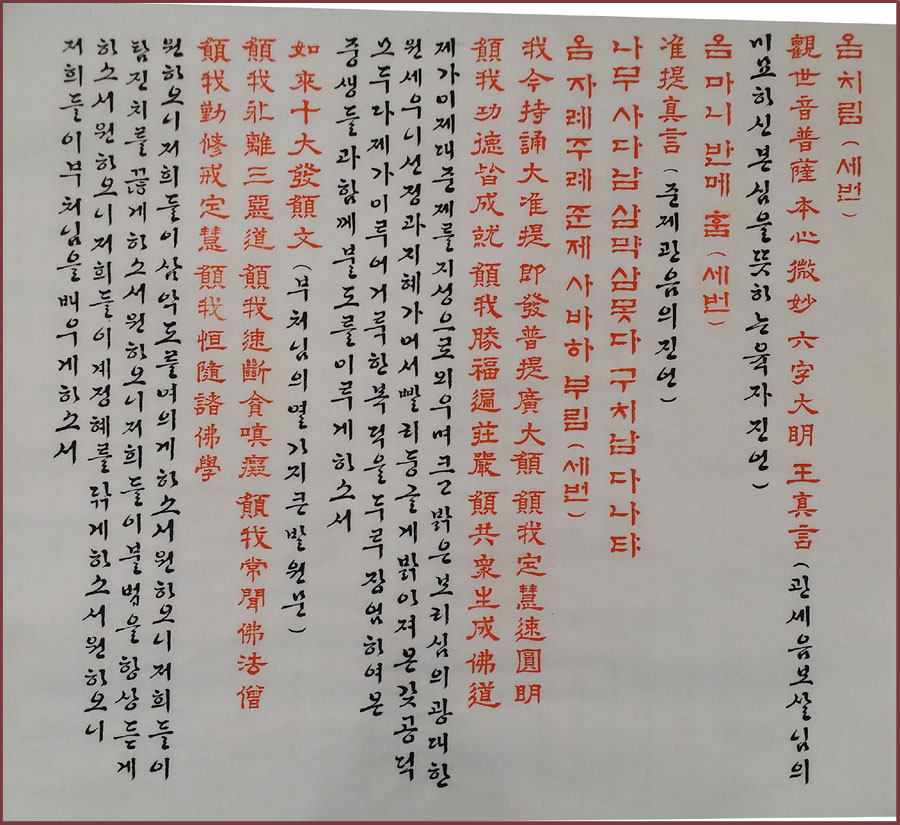 옴 치림 (세번)
觀世音普薩本心微妙 六字大明 王真言 (관세음보살님의
미묘하신본심을뜻하는육자진언)
옴 마니 반메 훔 (세번)
准提真言 (준제관음의진언)
나무 사다남 삼먁삼못다 구치남 다나탸
옴 자례주례 준제 사바하 부림 (세번)
我今持誦大准提 即發普提廣大願 願我定慧速圓明
願我功德皆成就 願我勝福遍莊嚴 願共衆生成佛道
제가이제대준제를지성으로외우며큰밝은보리심의광대한
원세우니선정과지혜가어서빨리둥글게밝아져온갖공덕
모두라제가이루어거룩한복덕을두루장엄하여온
중생들과함께불도를이루게하소서
如來十大發願文 (부처님의열가지큰발원문)
願我永離三惡道 願我速斷貪嗔癡 願我常聞佛法僧
願我勤修戒定慧 願我恒隨諸佛學
원하오니저희들이삼악도를여의게하소서원하오니저희들이
탐진치를끊게하소서원하오니저희들이불법을항상듣게
하소서원하오니저희들이계정혜를닦게하소서원하오니
저희들이부처님을배우게하소서